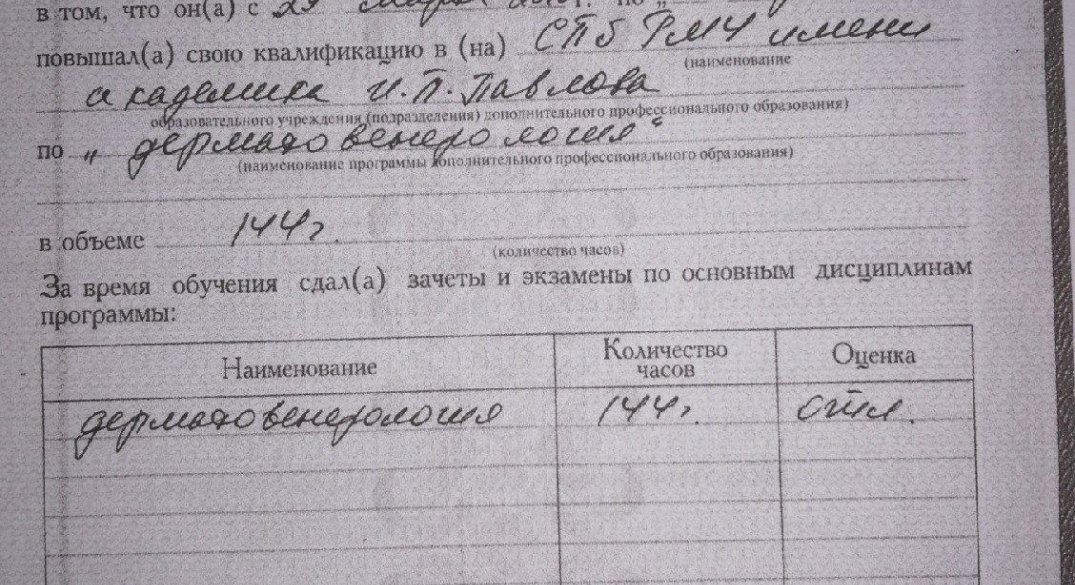 в том, что он(а) с
повышал(а) свою квалификацию в (на) СПб РМУ имени
(наименование
академика И.П. Павлова
образовательного учреждения (подразделения) дополнительного профессионального образования)
по „дерматовенерология“
(наименование программы дополнительного профессионального образования)
в объеме 144ч.
(количество часов)
За время обучения сдал(а) зачеты и экзамены по основным дисциплинам
программы:
Наименование Количество часов Оценка
дерматовенерология 144ч. отл.